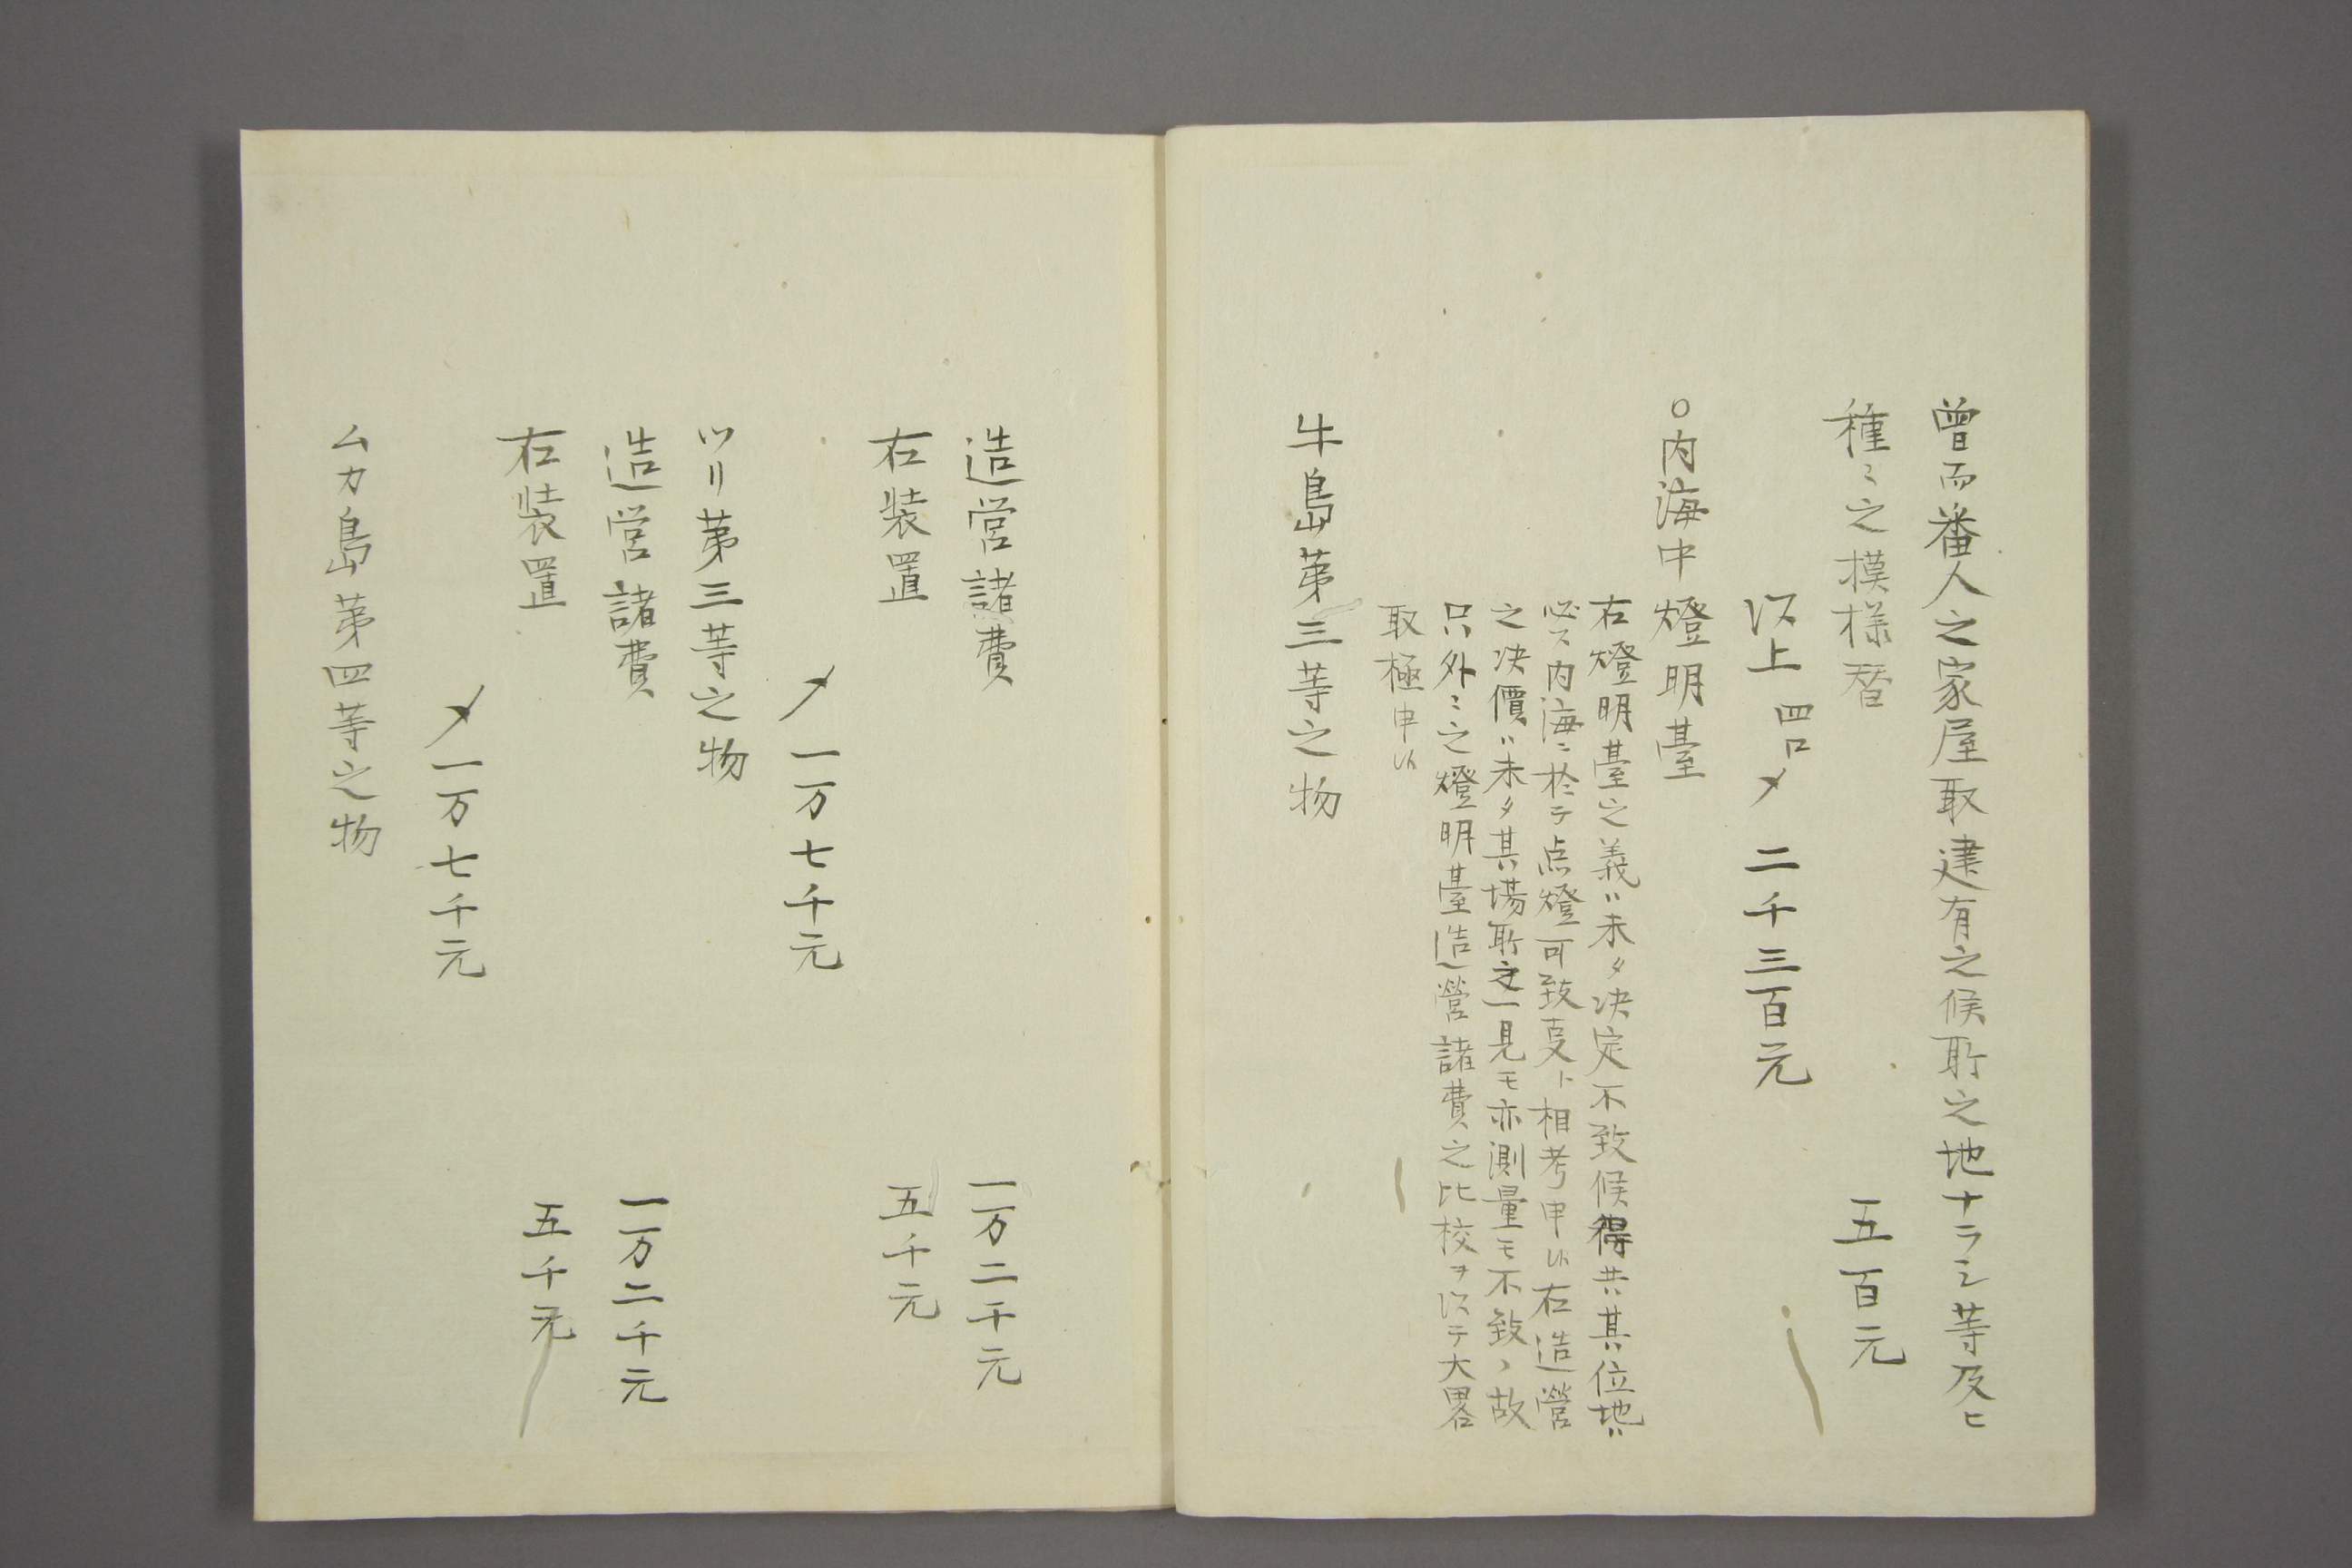 曽而番人之家屋取建有之候所之地ナラシ等及ヒ
種〻之摸様替
五百元
以上四口〆二千三百元
○内海中燈明臺
右燈明臺之義ハ未タ决定不致候得共其位地ハ
必ス内海ニ於テ点燈可致事ト相考申候右造營
之决價ハ未タ其場所之一見モ亦測量モ不致ヽ故
只外〻之燈明臺造營諸費之比校ヲ以テ大畧
取極申候
牛島第三等之物
造営諸費
一万二千元
右装置
五千元
〆一万七千元
ツリ第三等之物
造営諸費
一万二千元
右装置
五千元
〆一万七千元
ムカ島第四等之物